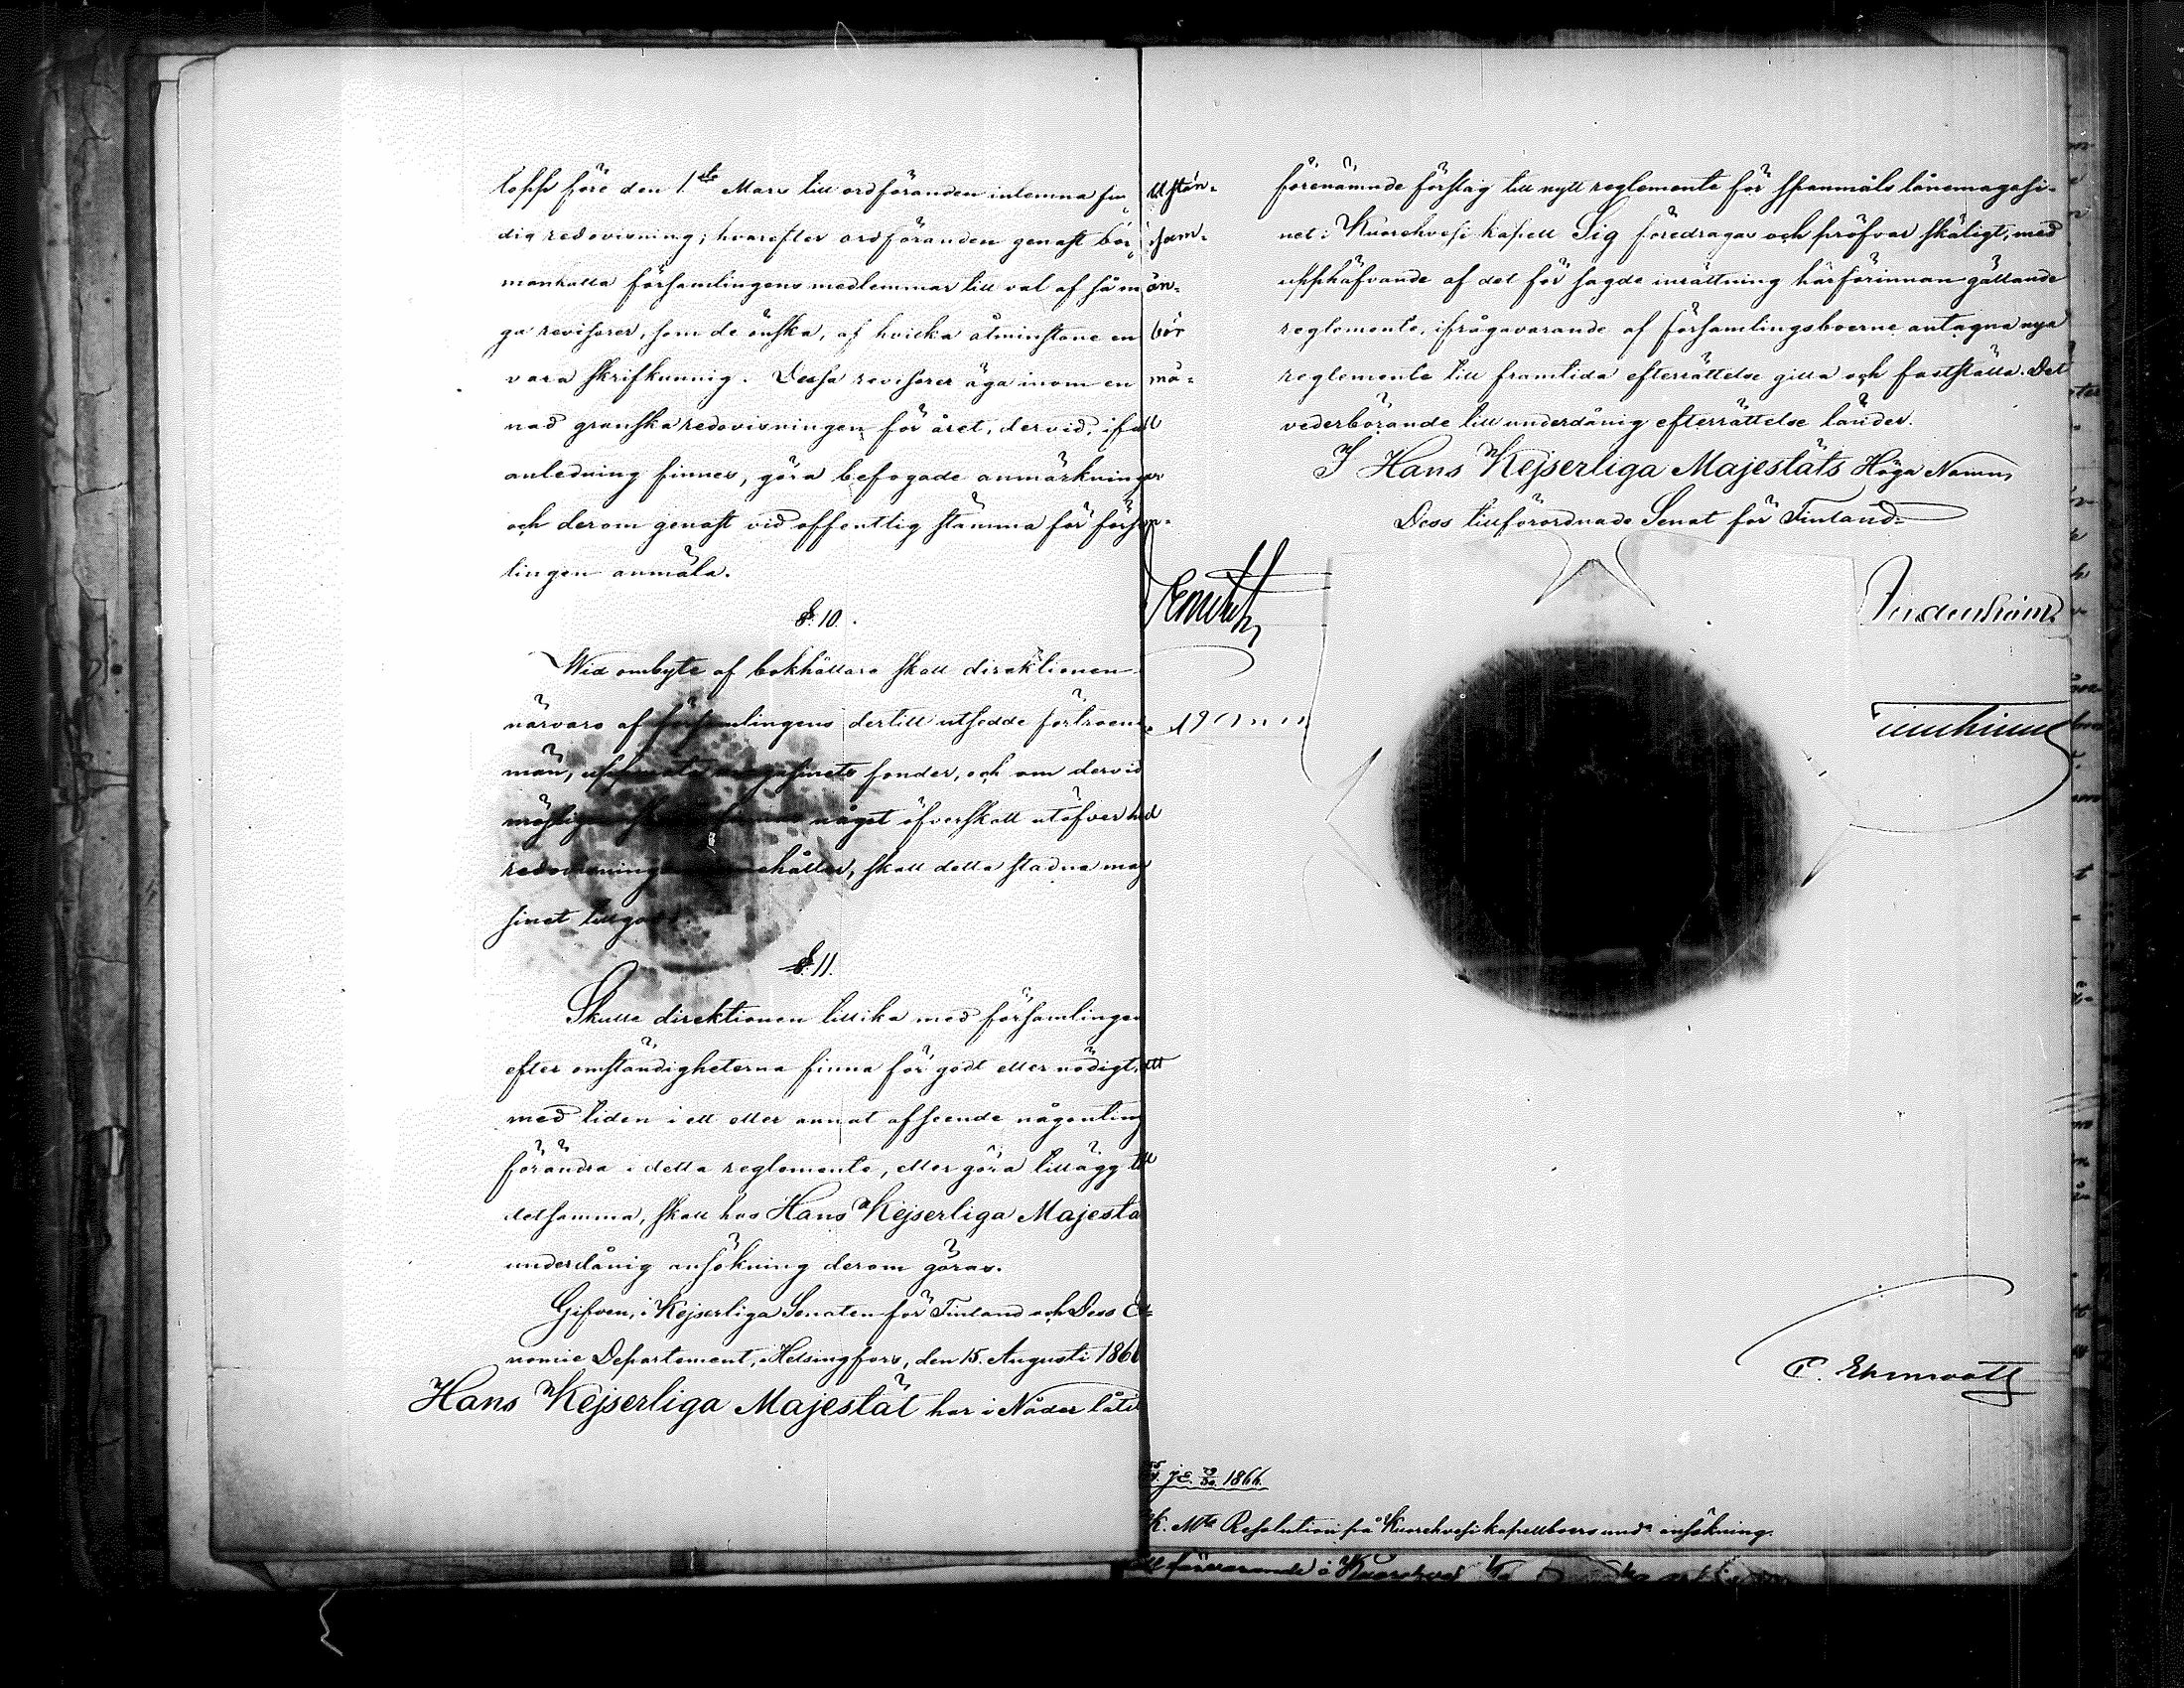 lopp före den 1.sta Mars till ordföranden inlemna fullstän-
dig redovisning; hvarefter ordföranden genast bör sam-
mankalla församlingens medlemmar till val af så mån-
ga revisorer, som de önska, af hvilka åtminstone en bör
vara skrifkunnig. Dessa revisorer äga inom en må-
nad granska redovisningen för året, dervid, ifall
anledning finnes, göra befogade anmärkningar
och derom genast vid offentlig stämma för försam-
lingen anmäla.
§. 10.
Wid ombyte af bokhållare skall direktionen
närvaro af församlingens dertill utsedde förtroende
män, uppmäta magasinets fonder, och om dervid
något öfverskott utöfver hvad
redovisningen innehåller, skall detta stadna maga
sinet tillgodo.
§. 11.
Skulle direktionen tillika med församlingen
efter omständigheterna finna för godt eller nödigt, att
med tiden i ett eller annat afseende någonting
förändra i detta reglemente, eller göra tillägg till
detsamma, skall hos Hans Kejserliga Majestä
underdånig ansökning derom göras.
Gifven, i Kejserliga Senaten för Finland och Dess Eko-
nomie Departement, i Helsingfors, den 15. Augusti 1866
Hans Kejserliga Majestät har i Nåder låtit
förenämnde förslag till nytt reglemente för spanmåls lånemagasi-
net i Kuorehvesi kapell Sig föredragas och pröfvar skäligt, med
upphäfvande af det för sagde inrättning härförinnan gällande
reglemente, ifrågavarande af församlingsboerne antagna nya
reglemente till framtida efterrättelse gilla och fastställa. Det
vederbörande till underdånig efterrättelse länder.
I Hans Kejserliga Majestäts Höga Namn,
Dess tillförordnade Senat för Finland
C. Ehrnrooth
1866.
K. Mts Resolution på Kuorehvesi kapellboers unds ansökning.
förvarande i Kuorehvesi